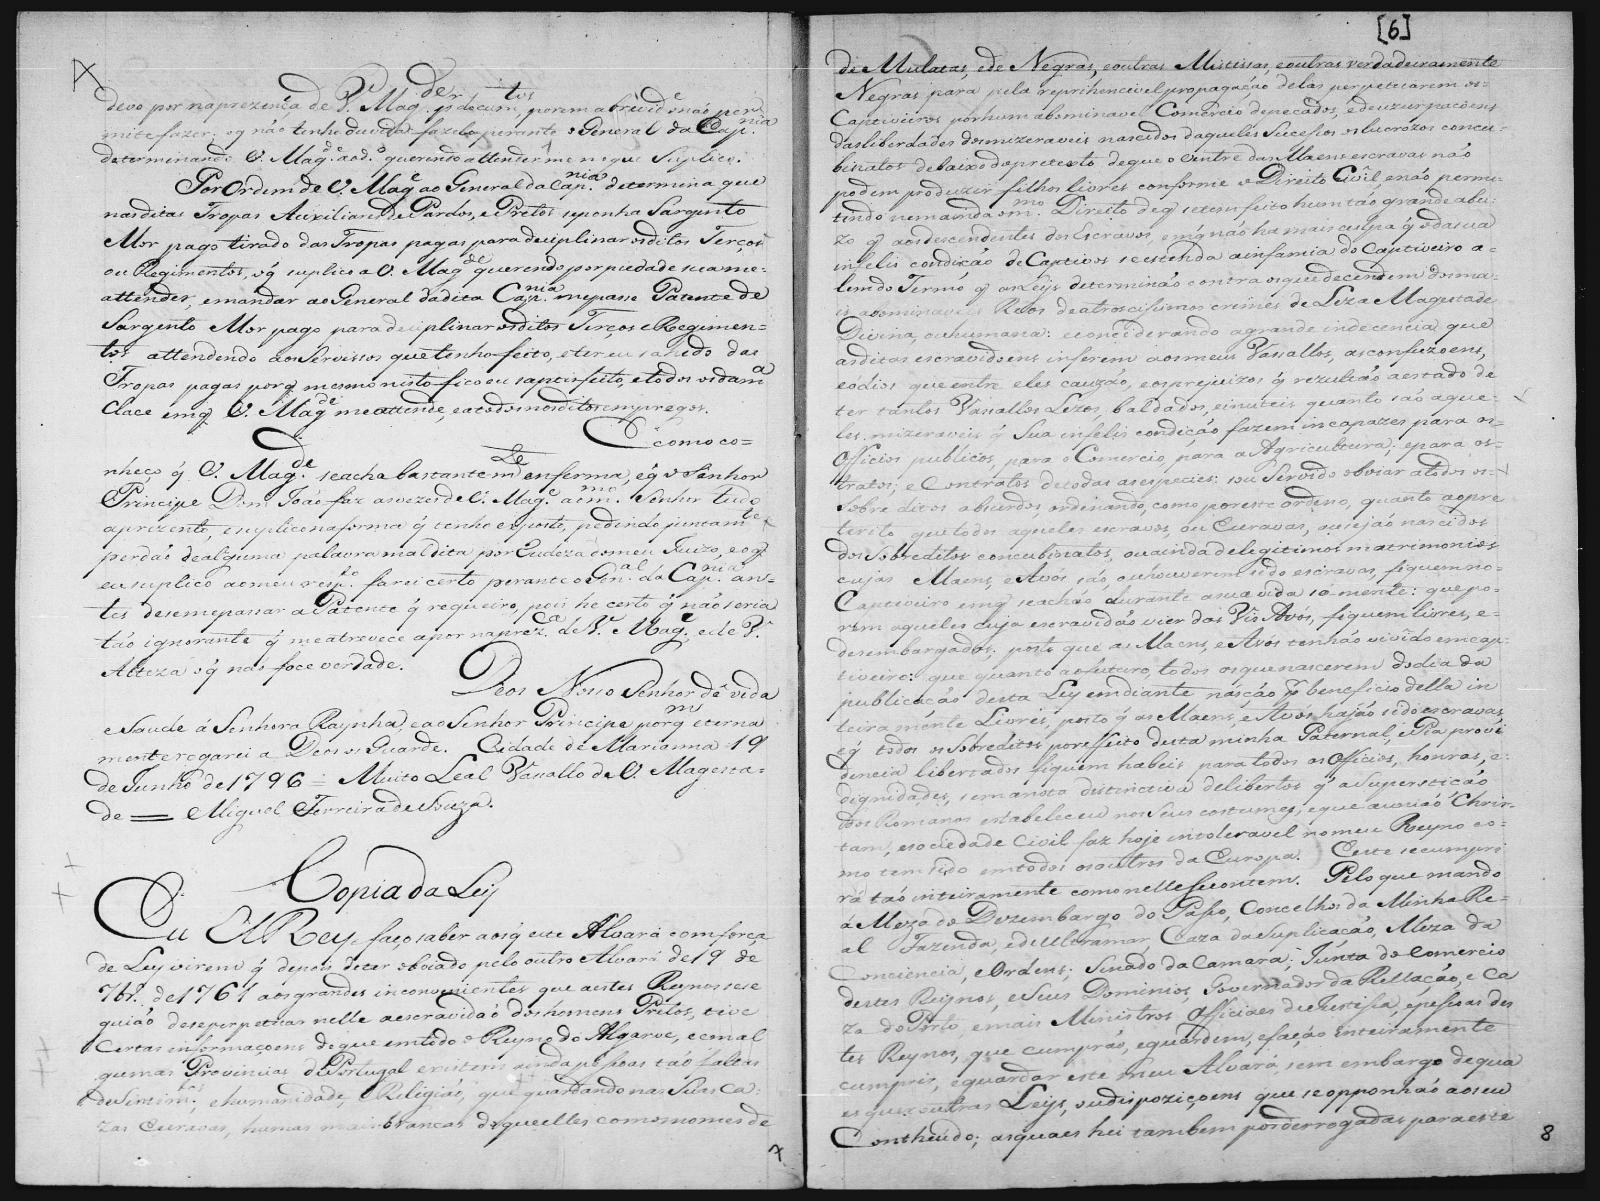 [6]
devo por na prezença de V. Mag.de os docum.tos, porem a brevid.e não per
mite fazer; o q não tenho duvida fazelo perante o General da Cap.nia
determinando V. Mag.de ao d.o querendo attenderme no que Suplico.
Por Ordem de V. Mag.e ao General da Cap.nia determina que
nas ditas Tropas Auxiliares de Pardos, e Pretos se ponha Sargento
Mor pago tirado das Tropas pagas para deciplinar os ditos Terços
ou Regimentos, o q suplico a V. Mag.de querendo por piedade se a me=
attender, e mandar ao General da dita Cap.nia me passe Patente de
Sargento Mor pago para deciplinar os ditos Terços e Regimen=
tos attendendo aos Servissos que tenho feito, e ter eu sahido das
Tropas pagas porq mesmo nisto fico eu saptisfeito, e todos os da m.a
Clace em q V. Mag.de me attende, e a todos nos ditos empregos.
E como co=
nheço q V. Mag.de se acha bastantem.te enferma, e q o Senhor
Principe Dom João faz as vezes de V. Mag.e ao m.mo Senhor tudo
aprezento, e suplico na forma q tenho exposto, pedindo juntam.te
perdão de alguma palavra mal dita por Rudeza do meu Juizo, e o q
eu suplico ao meu resp.to farei certo perante o Gn.al da Cap.nia an=
tes de se me passar a Patente q requeiro, pois he certo q não seria
tão ignorante q me atrevece a por na prez.ca de V. Mag.e, e de V.
Alteza o q não foce verdade.
Deos Nosso Senhor dê vida
e Saude á Senhora Raynha, e ao Senhor Principe porq m eterna
mente rogarei a Deos os Guarde. Cidade de Marianna 19
de Junho de 1796 = Muito Leal Vassallo de V. Magesta=
de = Miguel Ferreira de Souza.
Copia da Ley
Eu El Rey faço saber aos q este Alvará com força
de Ley virem q depois de ter obviado pelo outro Alvará de 19 de
7br.o de 1761 aos grandes inconvenientes que a estes Reynos se se
guião de se perpetuar nelle a escravidão dos homens Pretos, tive
certas informaçoens de que em todo o Reyno do Algarve, e em al
gumas Provincias de Portugal existem ainda pessoas tão faltas
de Sentim.tos, e humanidade, e Religião, que guardando nas Suas Ca=
zas Escravas, humas mais brancas do que elles com os nomes de
7
de Mulatas, e de Negras, e outras Mistissas, e outras verdadeiramente
Negras para pela reprihencivel propagação dellas perpetuarem os=
Captiveiros por hum abominavel Comercio de pecados, e de uzurpaçoens
das liberdades dos mizeraveis nascidos daqueles Sucessos e lucrozos concu=
binatos debaixo do pretexto de que o ventre das Maens escravas não
podem produzir filhos livres conforme o Direito Civil, e não permi=
tindo nem ainda o m.mo Direito de q se tem feito hum tão grande abu=
zo q aos descendentes dos Escravos, em q não ha mais culpa q o da sua
infelis condição de Captivos se extenda a infamia do Captiveiro a=
lem do Termo q as Leys determinão contra os que decendem dos ma=
is abominaveis Reos de atrocissimos crimes de Leza Magestade
Divina, ou humana: e considerando a grande indecencia que
as ditas escravidoens inferem aos meus Vassallos, as confuzoens,
e odios que entre eles cauzão, e os prejuizos q rezultão ao estado de
ter tantos Vassallos Lezos, baldados, e inuteis quanto são aque=
les mizeraveis q Sua infelis condição fazem incapazes para os
Officios publicos, para o Comercio, para a Agricultura, e para os=
tratos, e Contratos de todas as especies: sou Servido obviar a todos os=
Sobre ditos absurdos ordenando, como por este ordeno, quanto ao pre
terito que todos aqueles escravos, ou Escravas, ou sejão nascidos
dos Sobreditos concubinatos, ou ainda de legitimos matrimonios
cujas Maens, e Avós são, ou houverem sido escravas, fiquem no=
Captiveiro em q se achão durante a sua vida só mente: que po=
rem aqueles cuja escravidão vier das Vis Avós, fiquem livres, e=
desembargados, posto que as Maens, e Avós tenhão vivido em cap=
tiveiro: que quanto ao futuro, todos os que nascerem do dia da
publicação desta Ley em diante nasção p.r beneficio della in
teira mente Livres, posto q as Maens, e Avós hajão sido escravas
e q todos os Sobreditos por effeito desta minha Paternal, e Pia provi
dencia libertados fiquem habeis para todos os Officios, honras, e=
dignidades, sem a nota distinctiva de libertos q a Superstição
dos Romanos estabeleceu nos Seus costumes, e que a união Chris=
tam, e sociedade Civil faz hoje intoleravel no meu Reyno co=
mo tem sido em todos os outros da Europa. E este se cumpri
rá tão inteiramente como nelle se contem. Pelo que mando
á Meza do Dezembargo do Passo, Concelhos da Minha Re=
al Fazenda, e do Ultramar, Caza da Suplicação, Meza da
Conciencia, e Ordens; Senado da Camara; Junta do Comercio
destes Reynos, e Seus Dominios, Governador da Rellação, e Ca
za do Porto, e mais Ministros Officiaes de Justissa, e pessoas des
tes Reynos, que cumprão, e guardem, e fação inteiramente
cumprir, e guardar este meu Alvará, sem embargo de qua
es quer outras Leys, ou dispoziçoens que se opponhão ao seu
Conthiudo; as quaes hei tambem por derrogadas para este
8